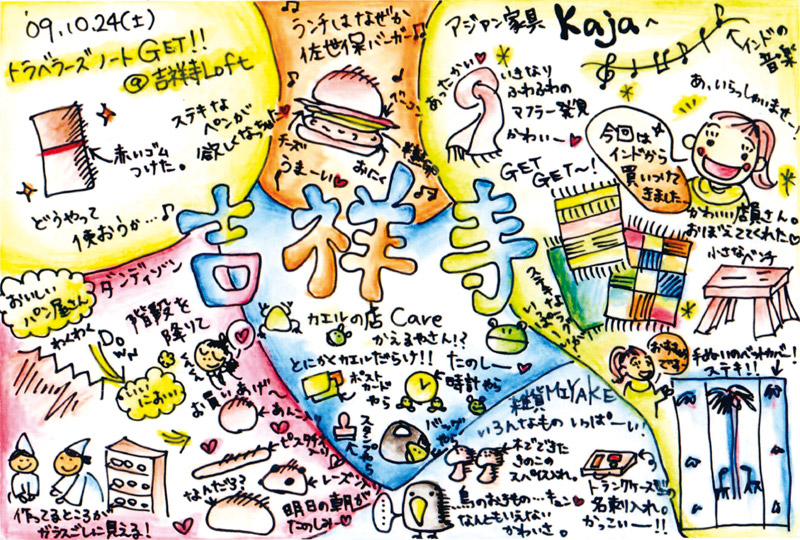 '09.10.24(土)
トラベラーズノートGET!!
@吉祥寺Loft
ステキな
ペンが
欲しくなっちゃった
赤いゴム
つけた。
どうやって
使おうか…♪
ランチはなぜか
佐世保バーガー♪
チーズ
おにく
うまーい
アジアン家具
Kajaへ
インドの
音楽
あったかい
いきなり
ふわふわの
マフラー発見
かわいー
あ、いらっしゃいませー!
今回は
インドから
買いつけて
きました
かわいい店員さん。
おぼえててくれた
GET
GET～!
小さなベンチ
おすすめ
です
手ぬいのベッドカバー!
ステキ!!
吉祥寺
ダンディゾン
おいしい
パン屋さん
わくわく
Down
階段を
降りて
いい
におい…
お買いあげ～
あんこ
ピスタチオ
入り
レーズン
なんだろう?
明日の朝が
たのしみ～
作ってるところが
ガラスごしに見える!
カエルの店 Care
かえるやさん!?
とにかくカエルだらけ!! たのしー
ポスト
カード
やら
時計やら
スタンプやら
バッグ
やら
雑貨MIYAKE
いろんなもの いっぱーい!
木でできた
きのこの
スパイス入れ。
トランクケース型の
名刺入れ。
かっこいー!!
鳥のおきもの…キュン
なんともいえない
かわいさ。